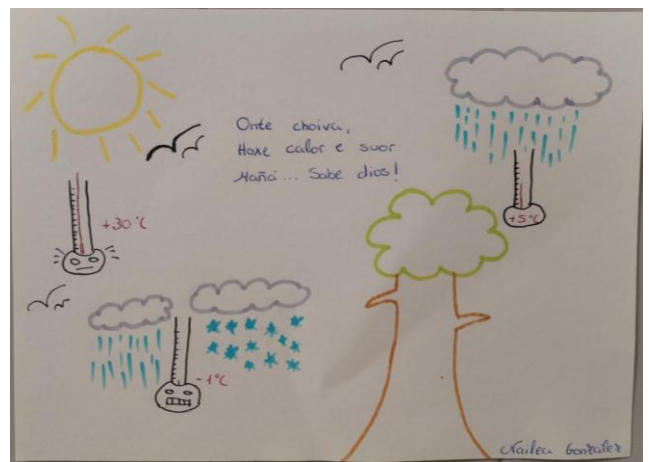 Onte choiva,
Hoxe calor e suor
Mañá... Sabe dios!
+5°C
+30°C
-1°C
Nailea Gonzalez